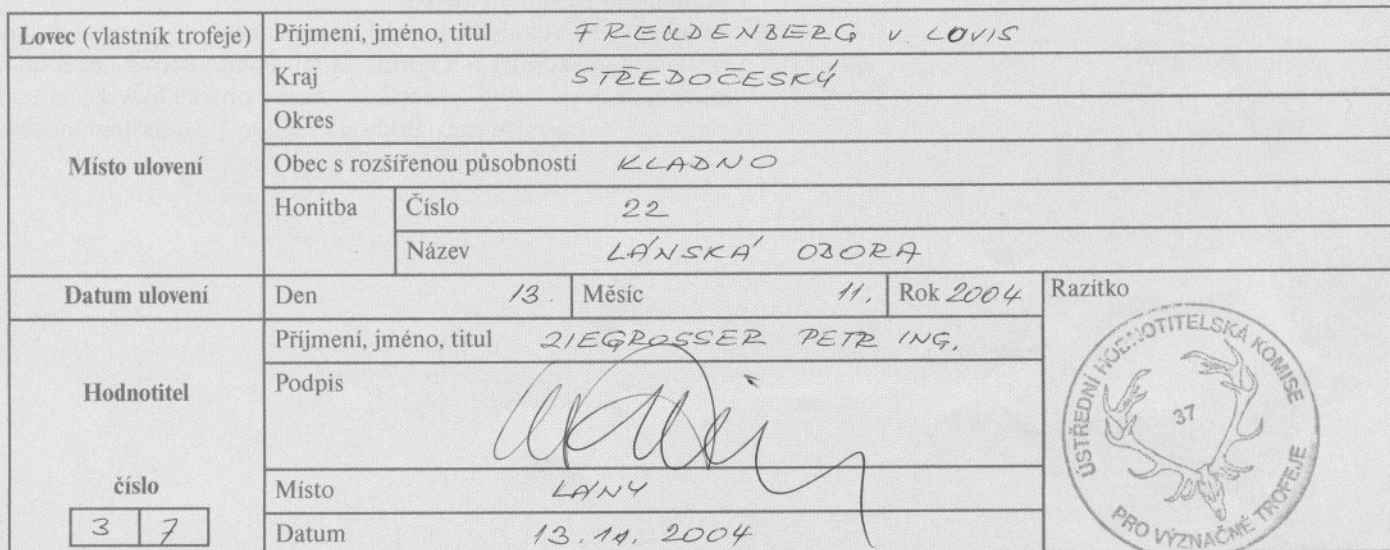 Lovec (vlastník trofeje) Příjmení, jméno, titul FREUDENBERG v LOUIS
Místo ulovení
Kraj STŘEDOČESKÝ
Okres
Obec s rozšířenou působností KLADNO
Honitba Číslo 22
Název LÁNSKÁ OBORA
Datum ulovení Den 13. Měsíc 11. Rok 2004 Razítko
Hodnotitel
Příjmení, jméno, titul ZIEGROSSER PETR ING.
Podpis
číslo
3 7
Místo LÁNY
Datum 13.11.2004
ÚSTŘEDNÍ HODNOTITELSKÁ KOMISE
37
PRO VÝZNAČNÉ TROFEJE